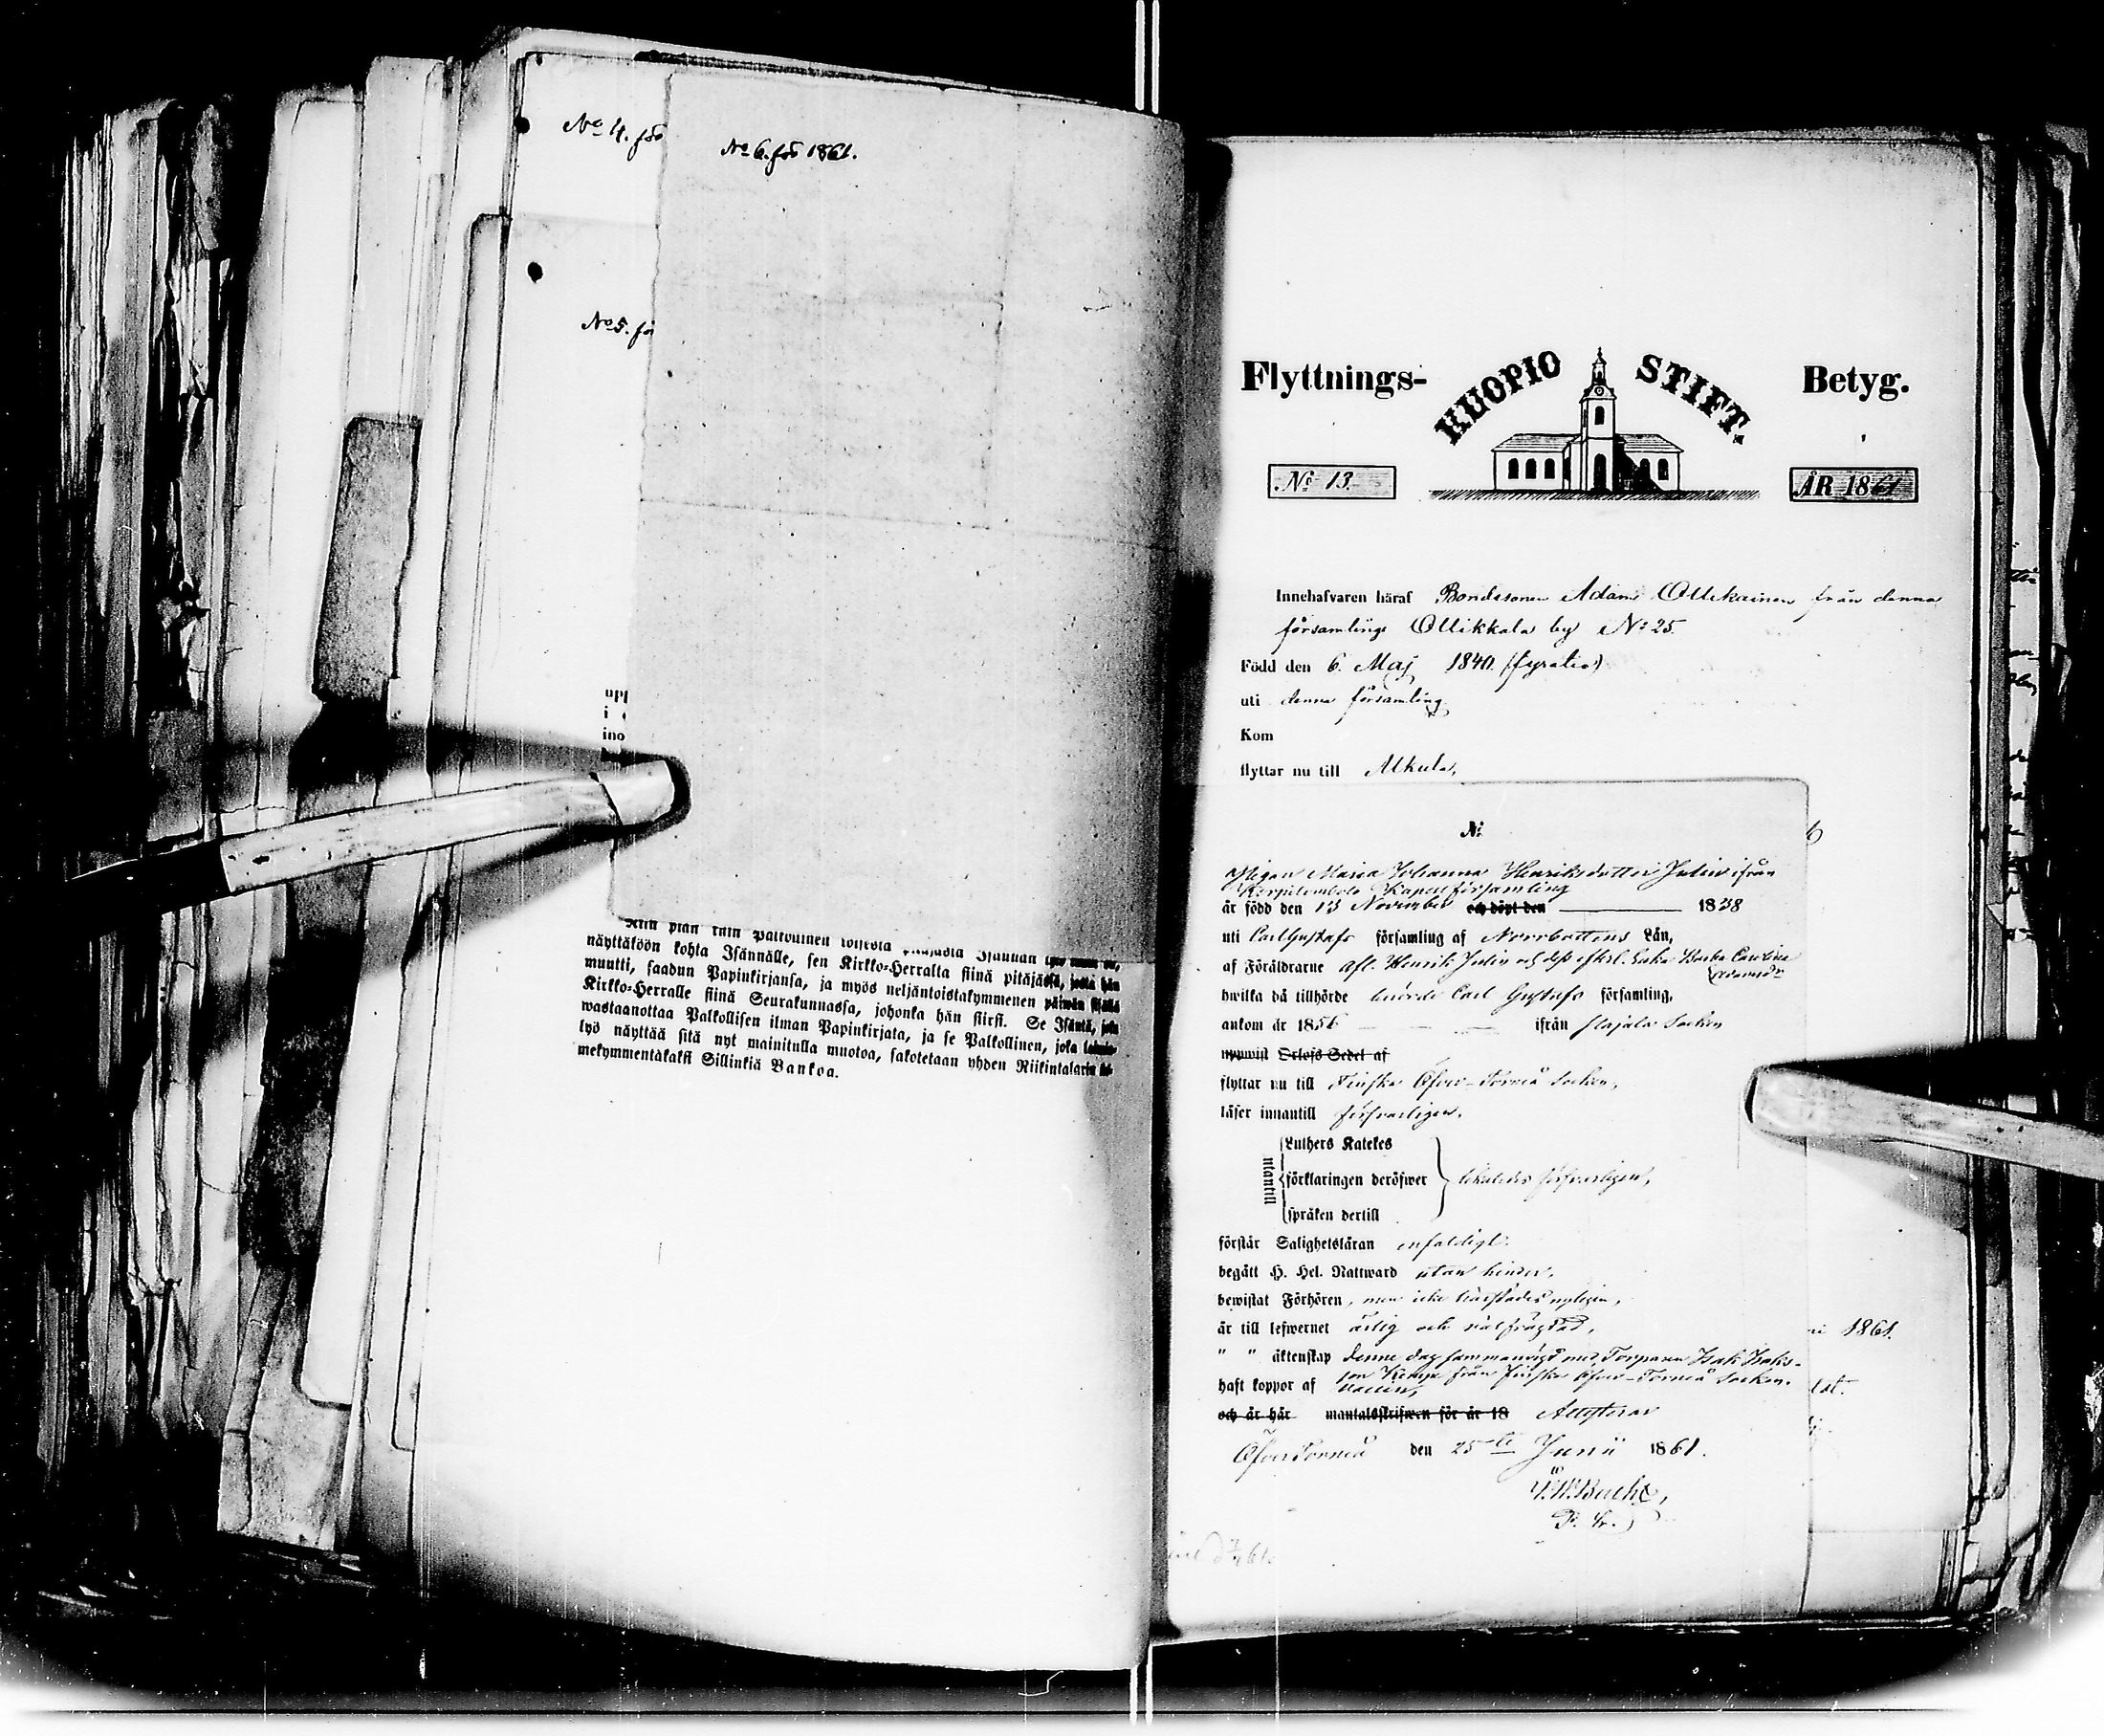 No 4. för
No 6. för 1861.
No 5. för
upp
i
ino
näyttäköön kohta Isännälle, sen Kirkko-Herralta siinä pitäjässä, josta hän
muutti, saadun Papinkirjansa, ja myös neljäntoistakymmenen päiwän sisällä
Kirkko-Herralle siinä Seurakunnassa, johonka hän siirsi. Se Isäntä, joka
wastaanottaa Palkollisen ilman Papinkirjata, ja se Palkollinen, joka
lyö näyttää sitä nyt mainitulla muotoa, sakotetaan yhden Riikintalarin
mekymmentäkaksi Sillinkiä Bankoa.
Flyttnings- KUOPIO STIFT. Betyg.
No 13. ÅR 1861
Innehafvaren häraf Bondesonen Adam Ollikainen från denna
församlings Ollikkala by No 25.
Född den 6. Maj 1840. (fyratio)
uti denna församling
Kom
flyttar nu till Alkula,
No
Pigan Maria Johanna Henriksdotter Julin ifrån
Korpilombolo Kapell församling
är född den 13 November och döpt den 1838
uti Carl Gustafs församling af Norrbottens Län,
af Föräldrarne Afl. Henrik Julin och dess efterl. Enka Carolina
hwilka då tillhörde Carl Gustafs församling,
ankom år 1856 ifrån Pajala Socken
uppwist Orlofs-Sedel af
flyttar nu till Finska Öfver-Torneå Socken,
läser innantill försvarligen,
utantill
Luthers Katekes
förklaringen deröfwer likaledes försvarligen,
språken dertill
förstår Salighetsläran enfaldigt.
begått H. Hel. Nattward utan hinder,
bewistat Förhören, men icke härstädes nyligen,
är till lefwernet ärlig och välfrägdad,
" " äktenskap denne dag sammanvigd med Torparen Isak Isaks-
son Kemppe från finska Öfver-Torneå Socken.
haft koppor af vaccin,
och är här mantalsskrifwen för år 18 Attesterar
ÖfverTorneå den 25te Junii 1861.
P. Br.
1861.